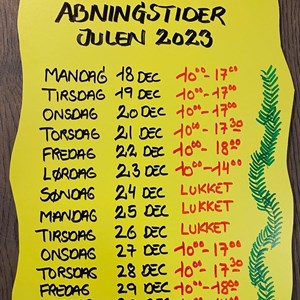 ABNINGSTIDER
JULEN 2023
MANDAG 18 DEC 10⁰⁰-17⁰⁰
TIRSDAG 19 DEC 10⁰⁰-17⁰⁰
ONSDAG 20 DEC 10⁰⁰-17⁰⁰
TORSDAG 21 DEC 10⁰⁰-17³⁰
FREDAG 22 DEC 10⁰⁰-18⁰⁰
LØRDAG 23 DEC 10⁰⁰-14⁰⁰
SØNDAG 24 DEC LUKKET
MANDAG 25 DEC LUKKET
TIRSDAG 26 DEC LUKKET
ONSDAG 27 DEC 10⁰⁰-17⁰⁰
TORSDAG 28 DEC 10⁰⁰-17³⁰
FREDAG 29 DEC 10⁰⁰-18⁰⁰